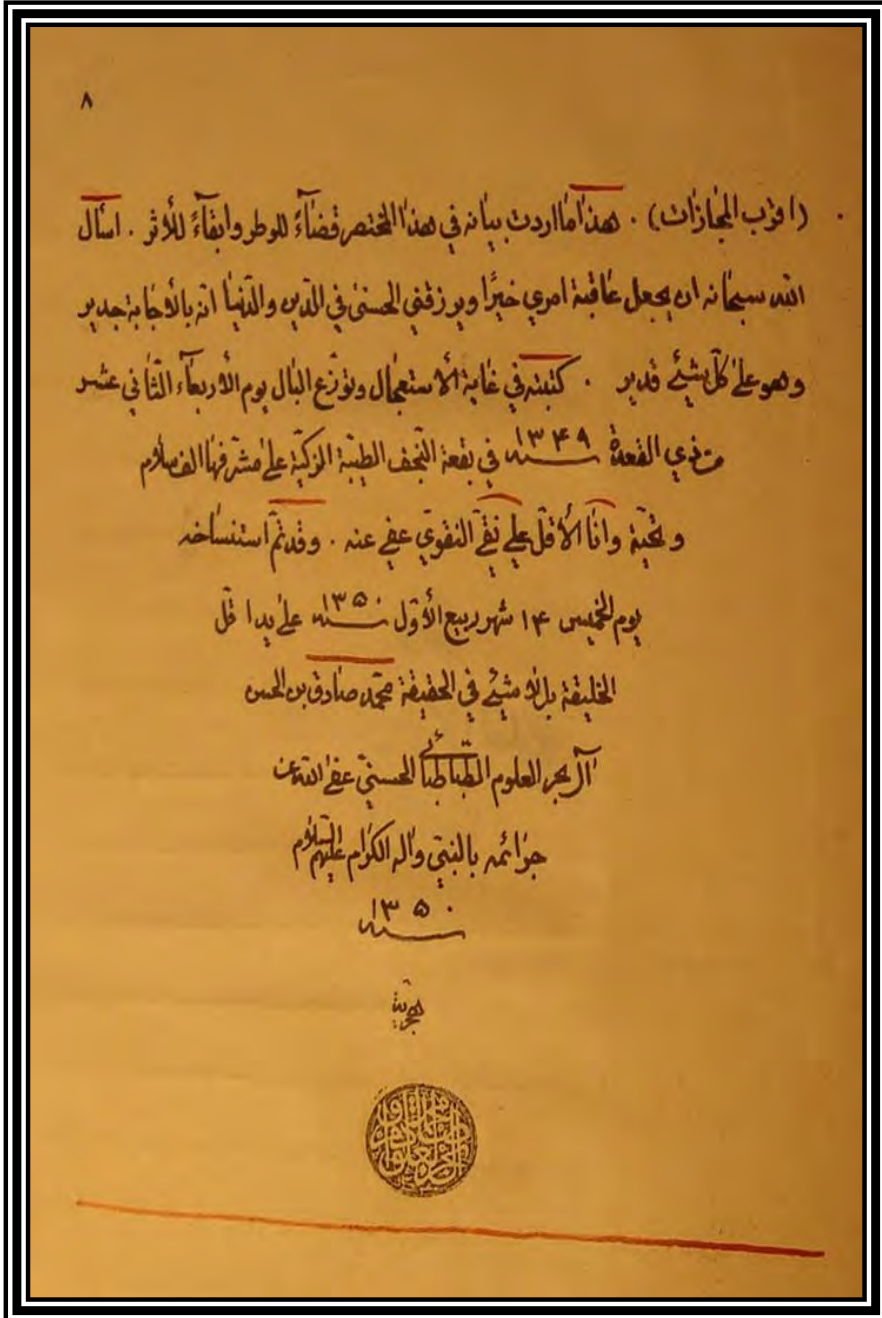 ٨
(اقرب المجازات) . هذا ما اردت بيانه في هذا المختصر قضآءً للوطر وابقآءً للأثر . اسأل
الله سبحانه ان يجعل عاقبة امري خيرًا ويرزقني الحسنى في الدين والدّنيا انّه بالأجابة جدير
وهو على كلّ شيئ قدير . كتبته في غاية الأستعجال وتوزّع البال يوم الأربعآء الثّاني عشر
من ذي القعدة سنه ١٣٤٩ في بقعة النّجف الطيّبة المزكيّة على مشرّفها الف سلام
و تحيّة وانا الأقلّ علي نقي النقويّ عفي عنه . وقد تمّ استنساخه
يوم الخميس ١٤ شهر ربيع الأوّل سنه ١٣٥٠ على يد اقل
الخليقة بل لا شيئ في الحقيقة محمّد صادق بن الحسن
آل بحر العلوم الطّباطبائي الحسنيّ عفى الله عن
جرائمه بالنبيّ واله الكرام عليهم السّلام
سنه ١٣٥٠
هجرية